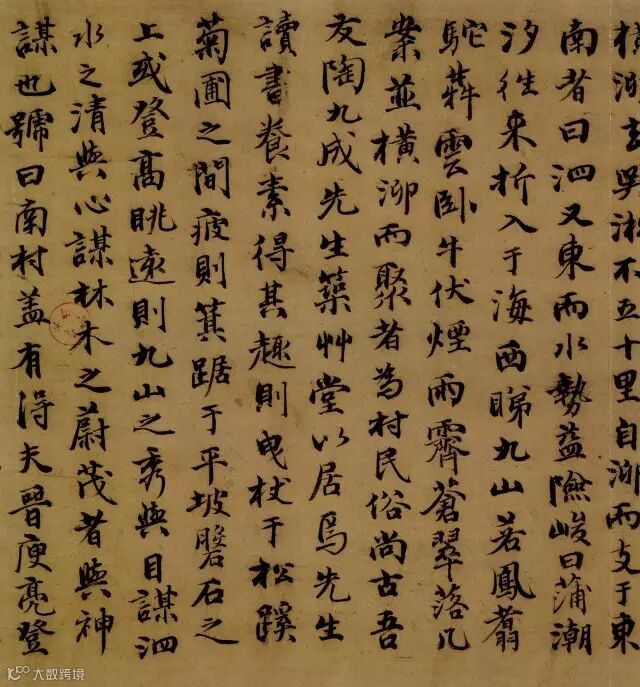 橫泖去吳淞不五十里自泖而支于東
南者曰泗又東而水勢益險峻曰蒲潮
汐徃來折入于海西睇九山若鳳翥
駝犇雲卧牛伏煙雨霽蒼翠落几
案並橫泖而聚者為村民俗尚古吾
友陶九成先生築艸堂以居焉先生
讀書養素得其趣則曳杖于松蹊
菊圃之間疲則箕踞于平坡磐石之
上或登高眺遠則九山之秀與目謀泗
水之清與心謀林木之蔚茂者與神
謀也號曰南村蓋有得夫晉庾亮登
大数跨境